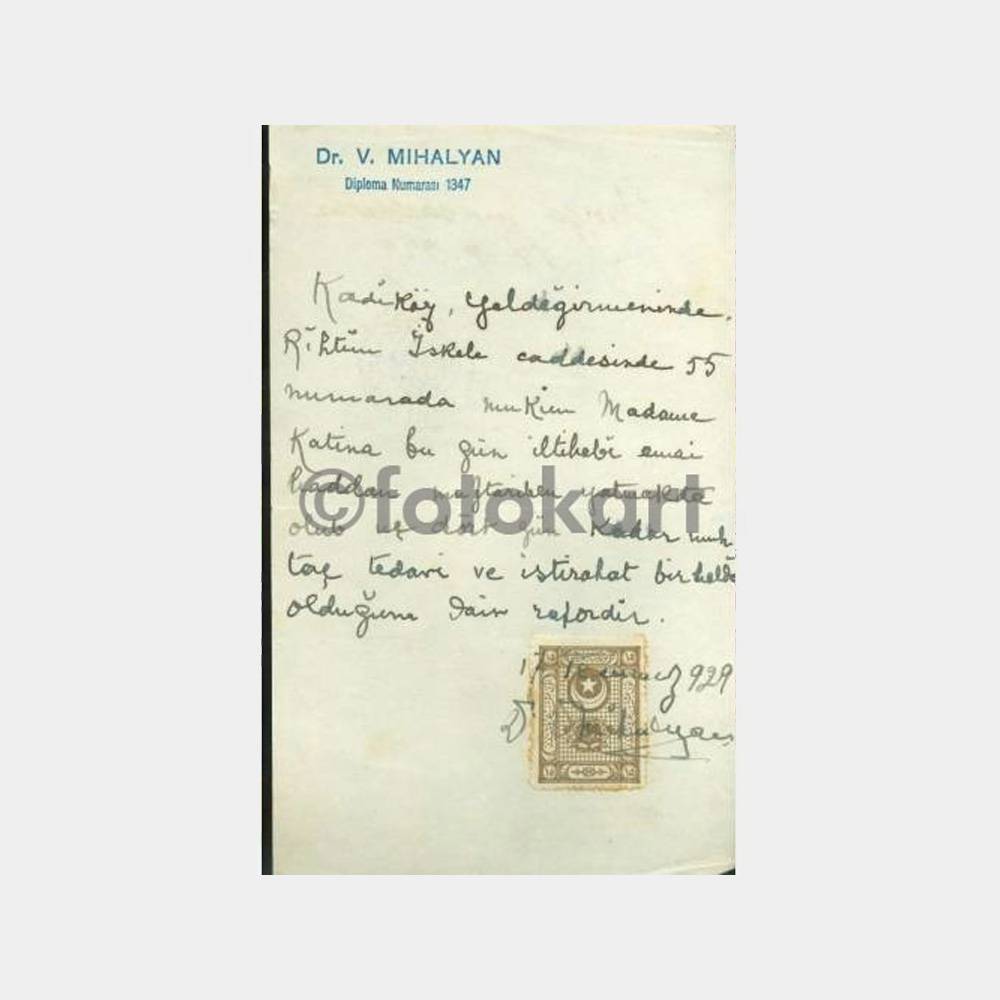 Dr. V. MIHALYAN
Diploma Numarası 1347
Kadıköy, Yeldeğirmeninde.
Rıhtım İskele caddesinde 55
numarada mukim Madame
Katina bu gün iltihebi emai
haddan yatmakda
©fotokart
olub üç dört gün Kadar muh
taç tedavi ve istirahat bir halde
olduğuna dair rapordir.
17 Temmuz 929
Dr Mihalyan